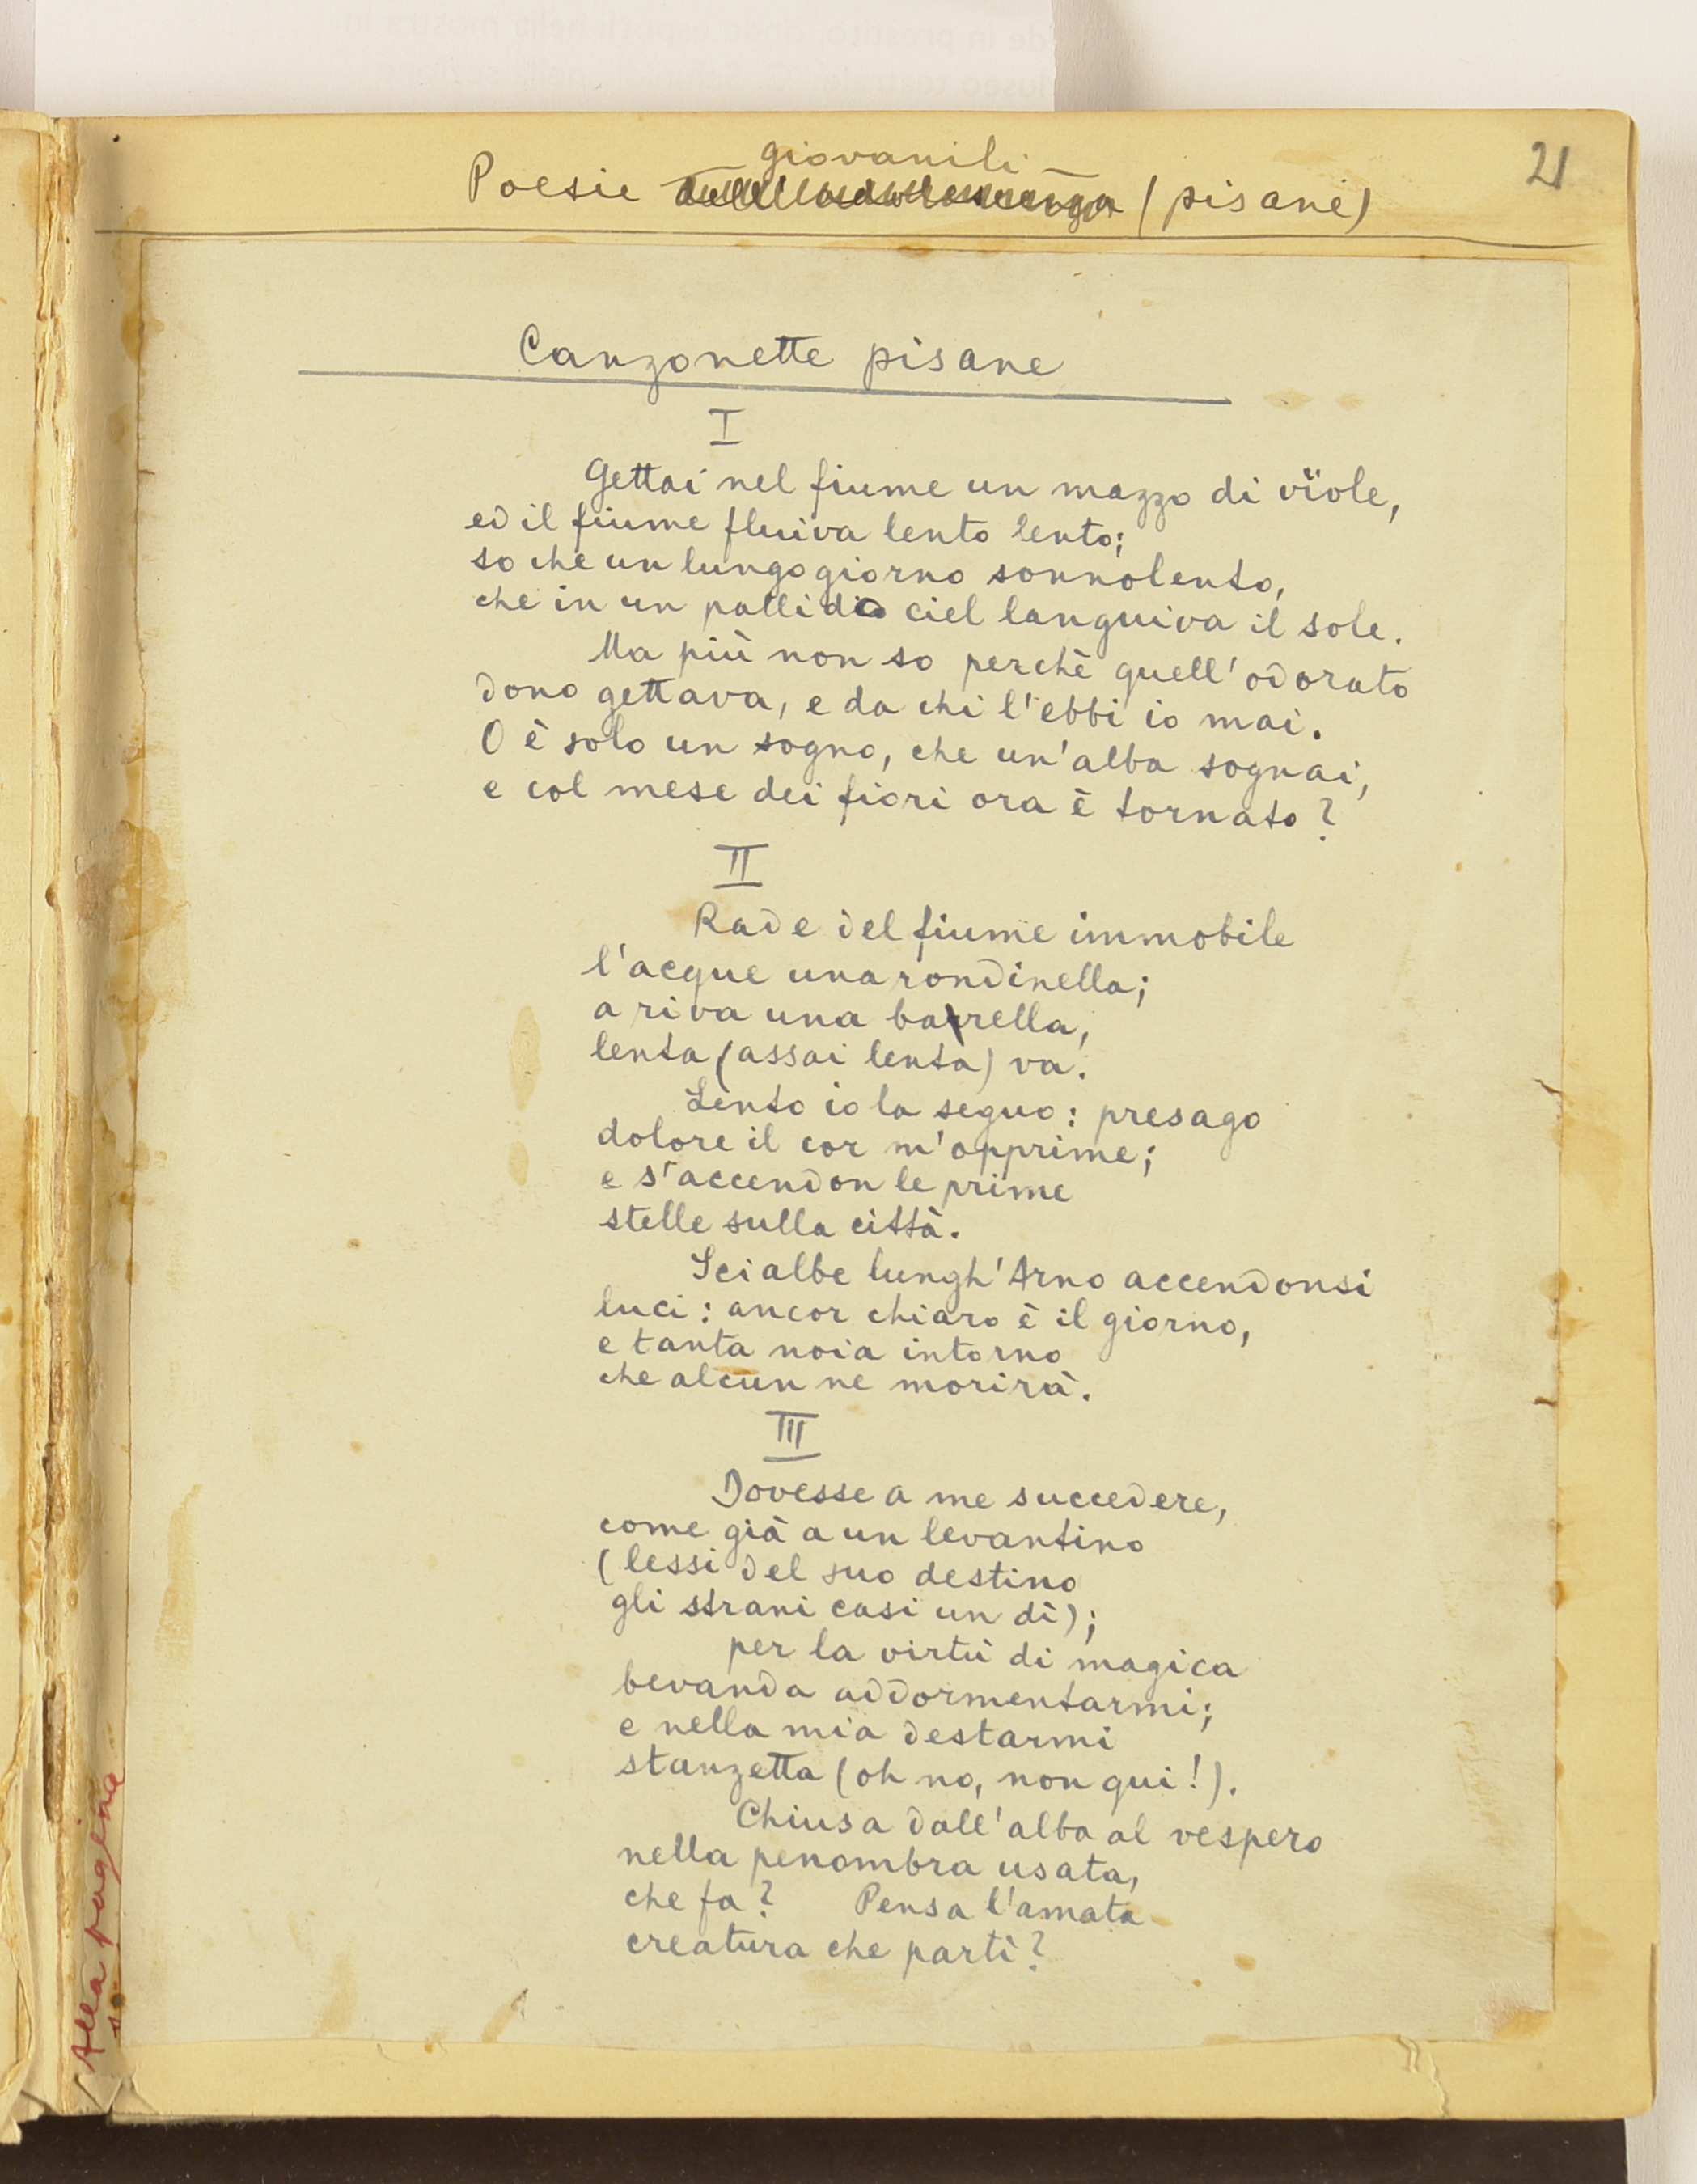 giovanili
Poesie dell'adolescenza (pisane)
21
Canzonette pisane
I
Gettai nel fiume un mazzo di vïole,
ed il fiume fluiva lento lento;
so che un lungo giorno sonnolento,
che in un pallido ciel languiva il sole.
Ma più non so perchè quell'odorato
dono gettava, e da chi l'ebbi io mai.
O è solo un sogno, che un'alba sognai,
e col mese dei fiori ora è tornato?
II
Rade del fiume immobile
l'acque una rondinella;
a riva una barella,
lenta (assai lenta) va.
Lento io la seguo: presago
dolore il cor m'opprime;
e s'accendon le prime
stelle sulla città.
Scialbe lungh'Arno accendonsi
luci: ancor chiaro è il giorno,
e tanta noia intorno
che alcun ne morirà.
III
Dovesse a me succedere,
come già a un levantino
(lessi del suo destino
gli strani casi un dì);
per la virtù di magica
bevanda addormentarmi;
e nella mia destarmi
stanzetta (oh no, non qui!).
Chiusa dall'alba al vespero
nella penombra usata,
che fa? Pensa l'amata
creatura che partì?
Alla pagina